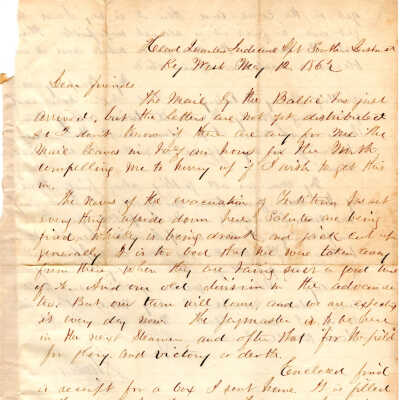 Head Quarters Judicial Dpt Southern District
Key West May 12 1862
Dear friends
The Mail by the Baltic has just
arrived, but the letters are not yet distributed
so I don't know if there are any for me The
Mail leaves in ½ an hour for the North
compelling me to hurry up if I wish to get this
in.
The news of the evacuation of Yorktown has set
every thing upside down here, Salutes are being
fired, whisky is being drank and jack cut up
generally. It is too bad that we were taken away
from there, when they are having such a good time
of it. And our old division in the advance
too. But our turn will come, and we are expecting
it every day now. The paymaster is to be here
in the next steamer and after that "for the field"
for glory and victory or death.
Enclosed find
a receipt for a box I sent home It is filled